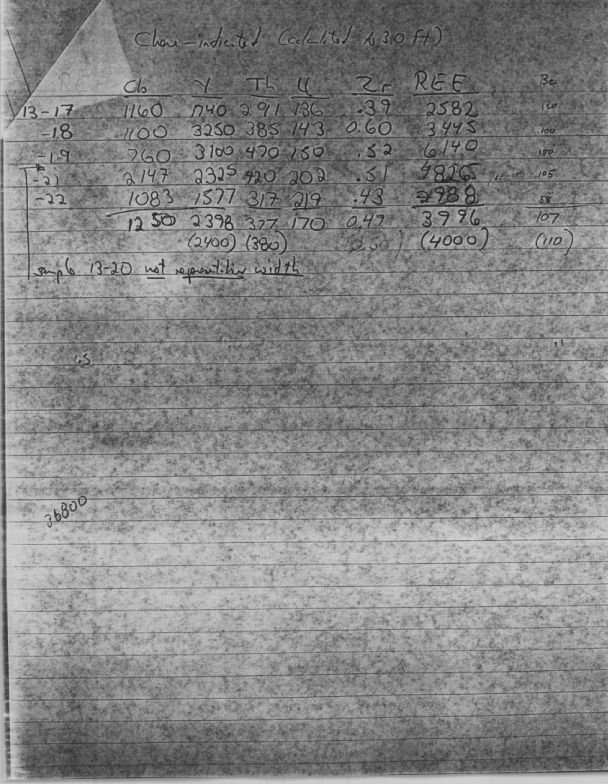 -indicated (calculated to 30 ft)
Cb Y Th U Zr REE Be
13-17 1160 1740 291 136 .39 2582 120
-18 1100 3250 385 143 0.60 3445 100
-19 760 3100 470 150 .52 6140 150
-21 2147 2325 420 202 .51 4826 105
-22 1083 1577 317 219 .43 2988 58
1250 2398 377 170 0.47 3996 107
(2400) (380) (4000) (110)
sample 13-20 not representative width
65
36800